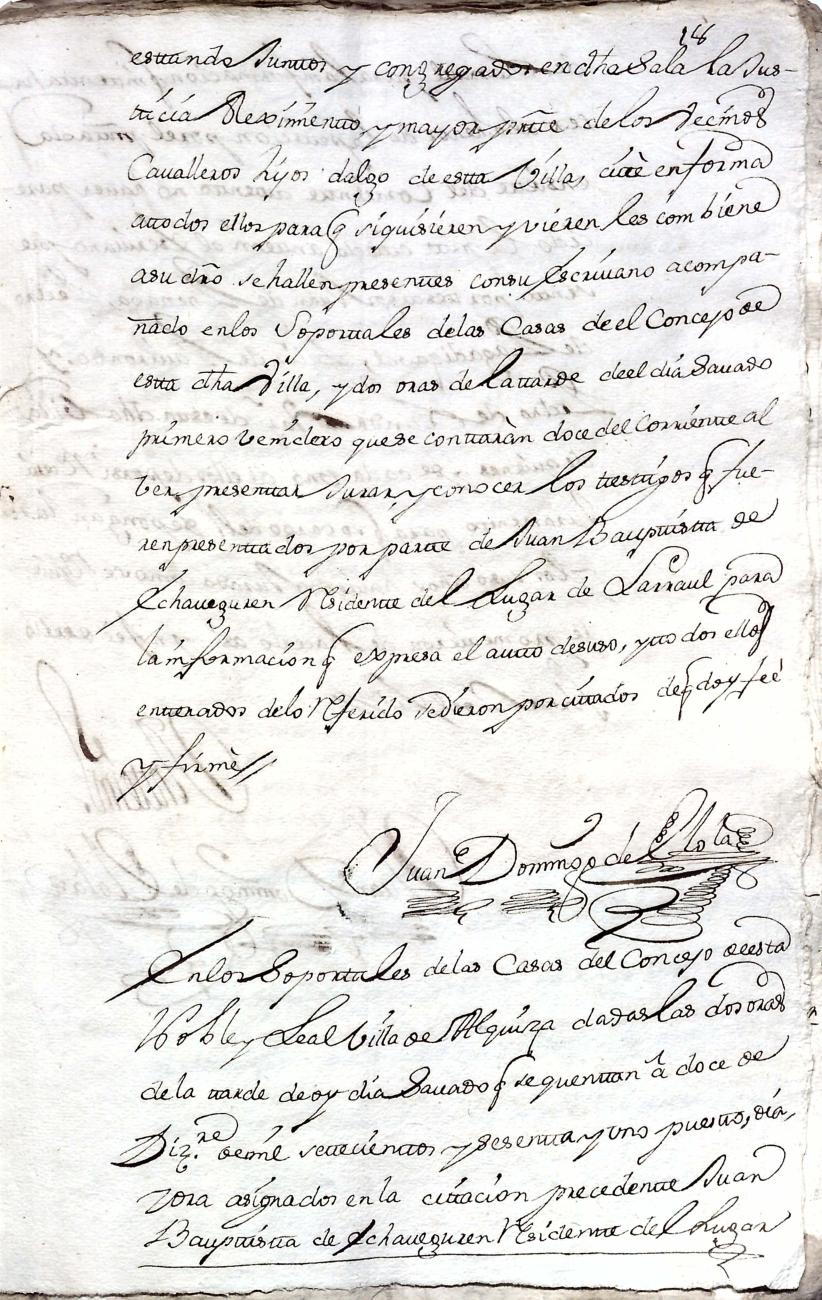 18
estando Juntos y congregados en dha Sala la Jus-
ticia Reximiento, y mayor prte de los Vecinos
Cavalleros hijos dalgo de esta Villa, citè en forma
a todos ellos para q si quisieren y vieren les combiene
a su dro se hallen presentes con su Escrivano acompa-
ñado en los Soportales de las Casas de el Concejo de
esta dha Villa, y dos oras de la tarde de el dia Savado
primero venidero que se contaràn doce del Corriente al
ver, presentar Jurar, y conocer los testigos q fue-
ren presentados por parte de Juan Bauptista de
Echaveguren Residente del Lugar de Larraul para
la informacion q expresa el auto de suso, y todos ellos
enterados de lo Referido se dieron por citados de q doy feè
y firmè//
Juan Domingo de Elola
En los Soportales de las Casas del Concejo de esta
Noble y Leal Villa de Alquiza dadas las dos oras
de la tarde de oy dia Savado q se quentan à doce de
Diz.re de mil setecientos y sesenta y uno puesto, dia,
y ora asignados en la citacion precedente Juan
Bauptista de Echaveguren Residente del Lugar